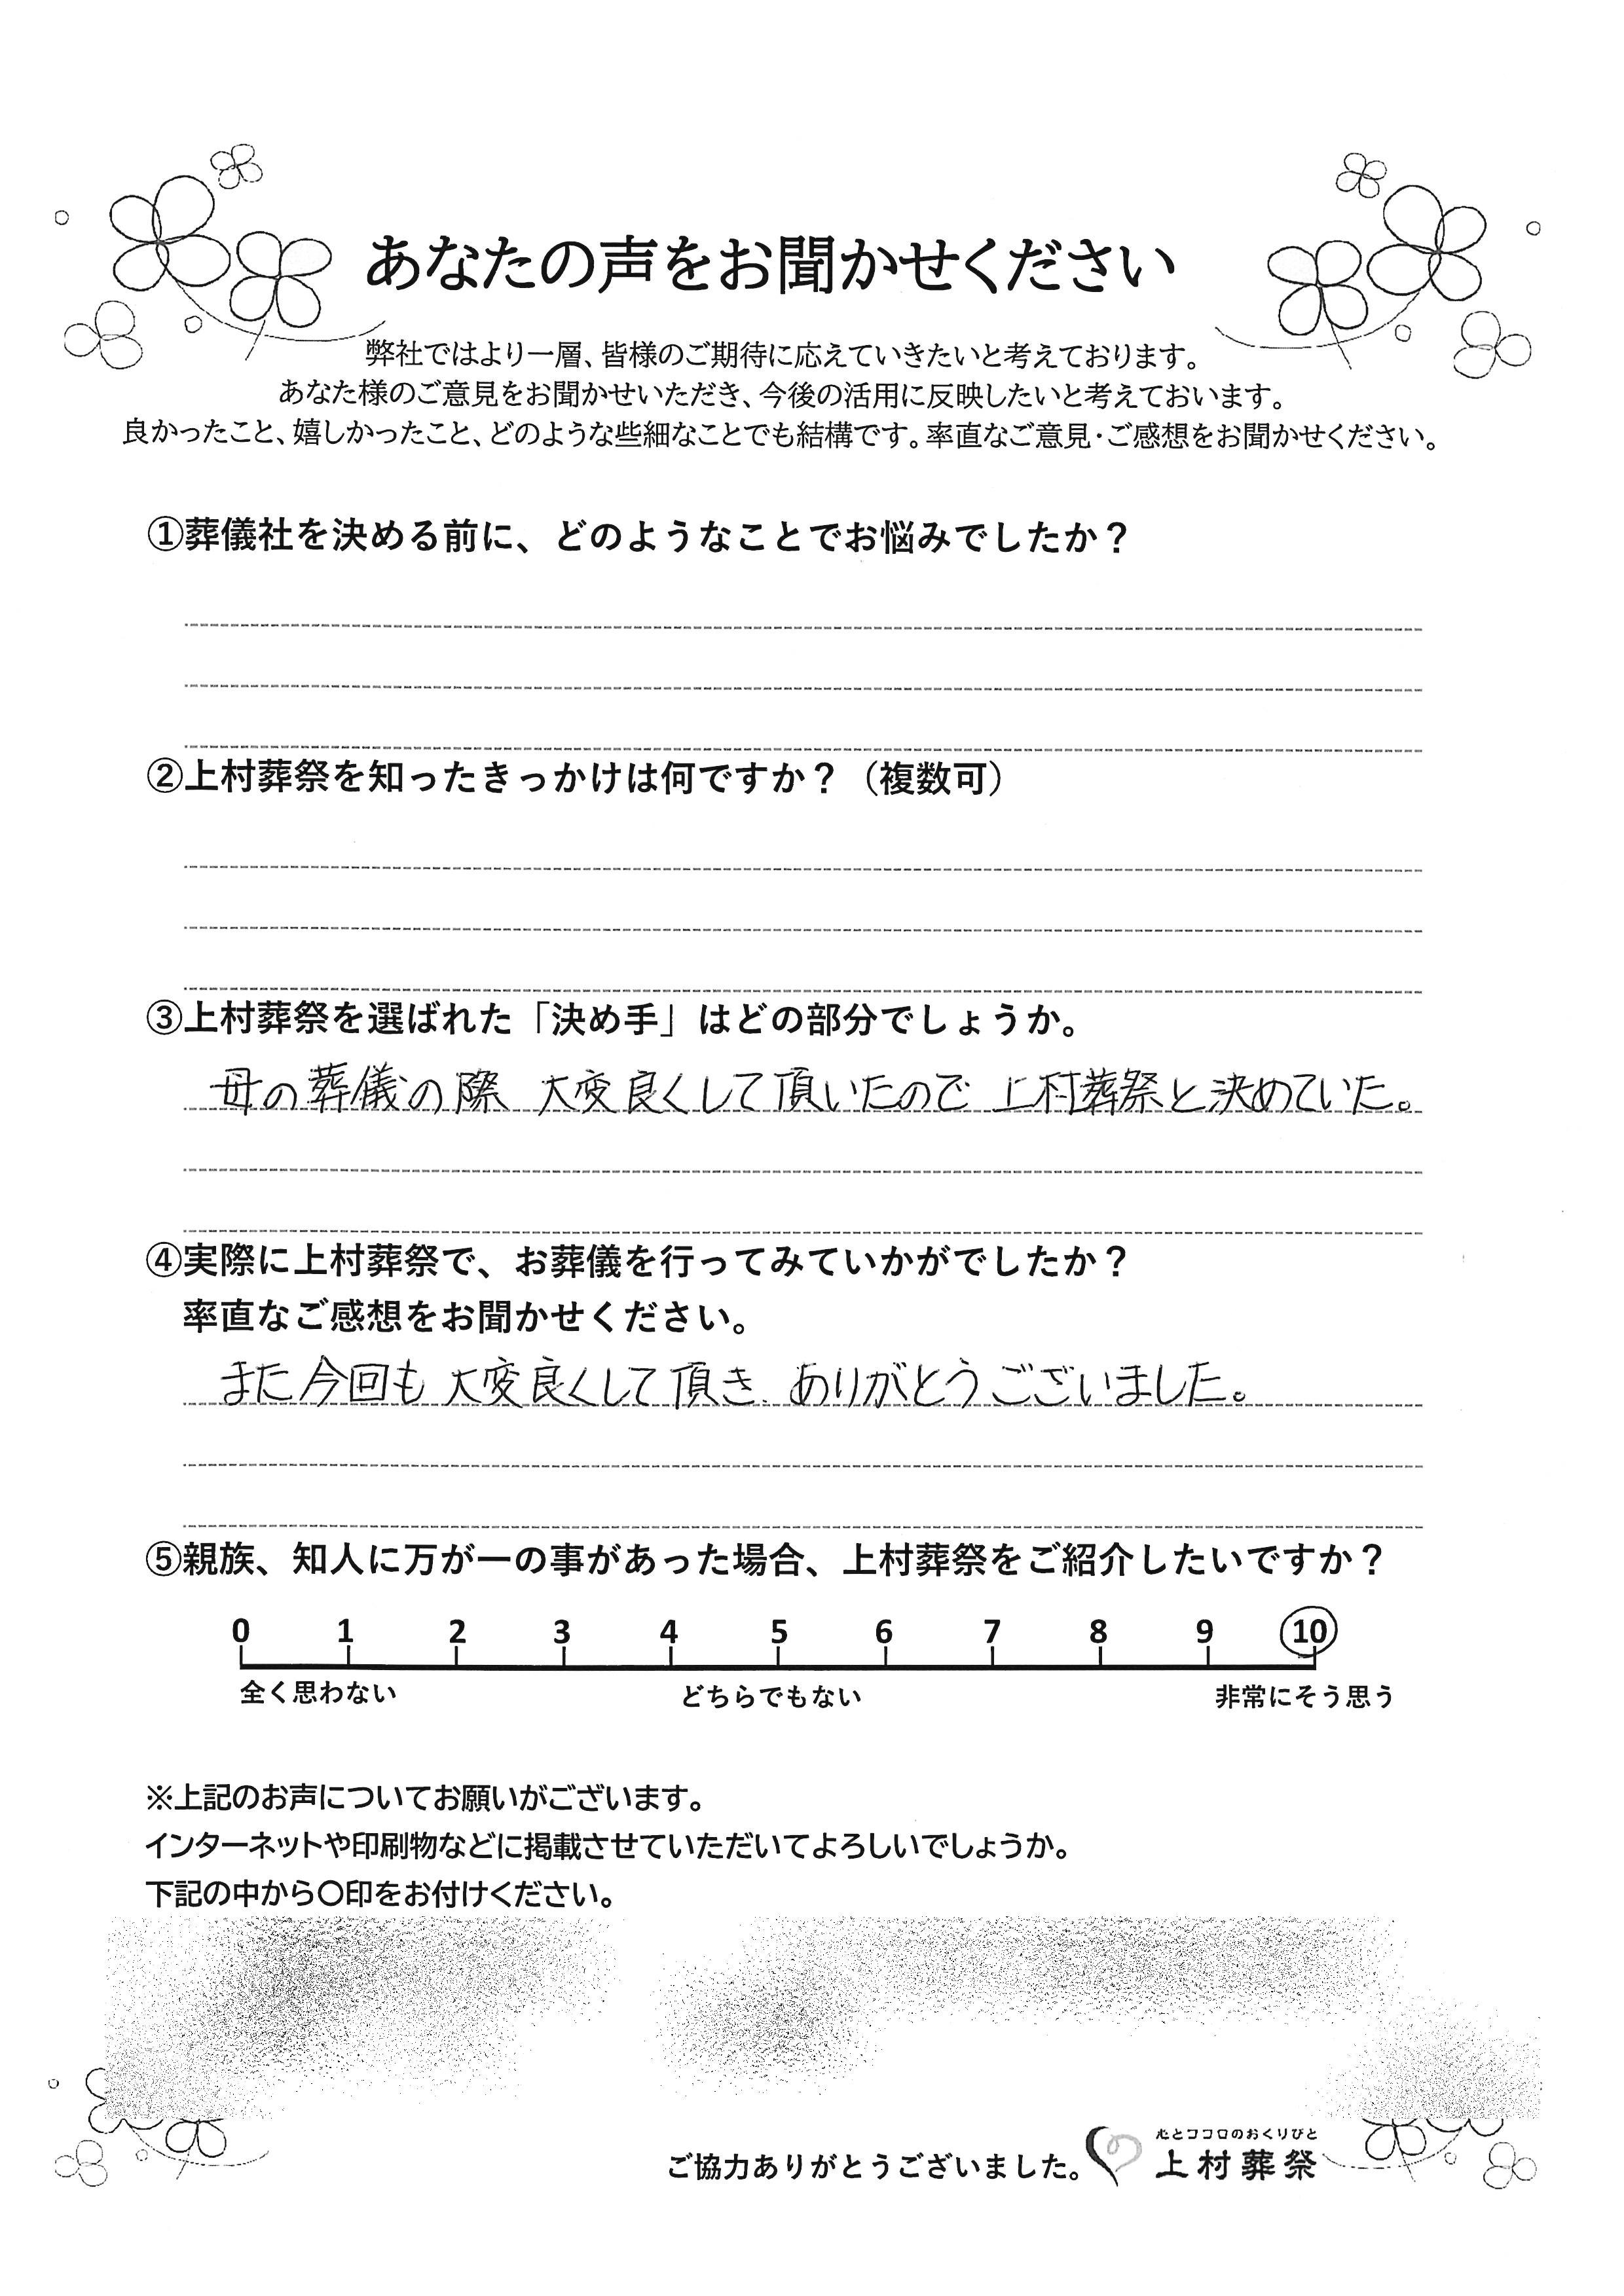 あなたの声をお聞かせください
弊社ではより一層、皆様のご期待に応えていきたいと考えております。
あなた様のご意見をお聞かせいただき、今後の活用に反映したいと考えておいます。
良かったこと、嬉しかったこと、どのような些細なことでも結構です。率直なご意見・ご感想をお聞かせください。
①葬儀社を決める前に、どのようなことでお悩みでしたか？
②上村葬祭を知ったきっかけは何ですか？（複数可）
③上村葬祭を選ばれた「決め手」はどの部分でしょうか。
母の葬儀の際 大変良くして頂いたので 上村葬祭と決めていた。
④実際に上村葬祭で、お葬儀を行ってみていかがでしたか？
率直なご感想をお聞かせください。
また今回も大変良くして頂き、ありがとうございました。
⑤親族、知人に万が一の事があった場合、上村葬祭をご紹介したいですか？
0 1 2 3 4 5 6 7 8 9 10
全く思わない どちらでもない 非常にそう思う
※上記のお声についてお願いがございます。
インターネットや印刷物などに掲載させていただいてよろしいでしょうか。
下記の中から〇印をお付けください。
心とココロのおくりびと
ご協力ありがとうございました。 上村葬祭